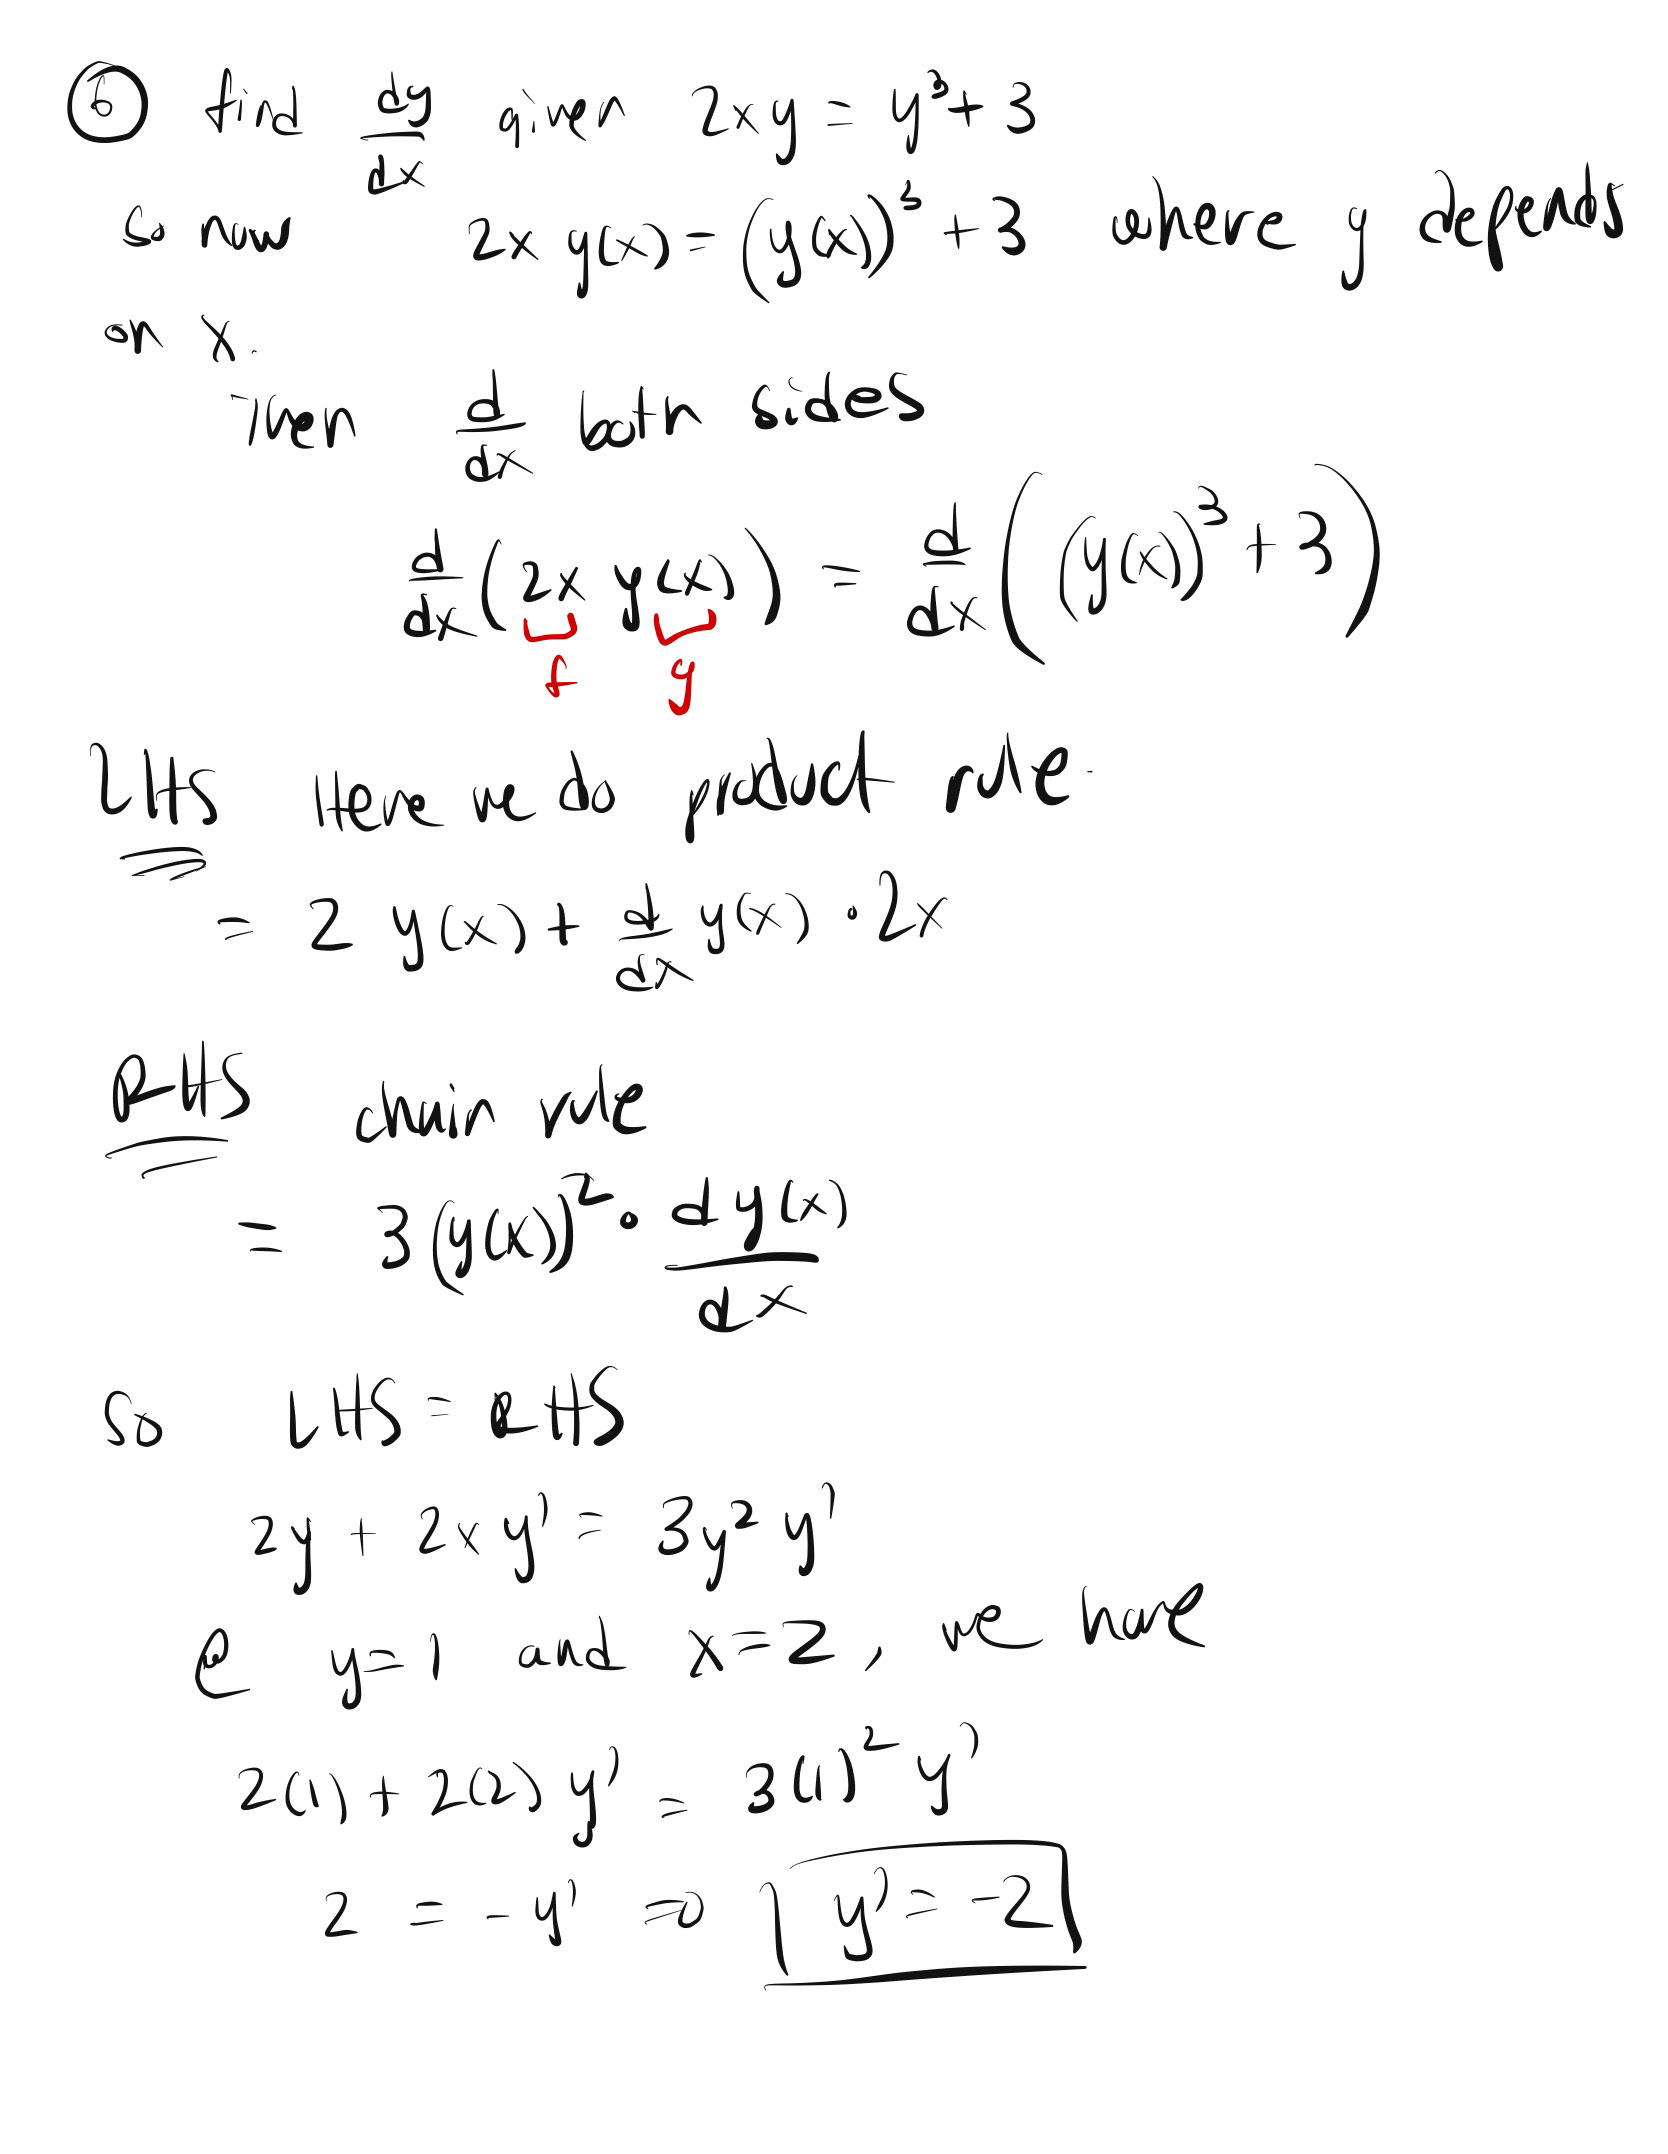 ⑥ find dy/dx given 2xy = y³ + 3
so now 2x y(x) = (y(x))³ + 3 where y depends
on x.
Then d/dx both sides
d/dx (2x y(x)) = d/dx ((y(x))³ + 3)
f g
LHS Here we do product rule.
= 2 y(x) + d/dx y(x) · 2x
RHS chain rule
= 3(y(x))² · dy(x)/dx
So LHS = RHS
2y + 2xy' = 3y² y'
@ y=1 and x=2, we have
2(1) + 2(2) y' = 3(1)² y'
2 = -y' ⇒ y' = -2